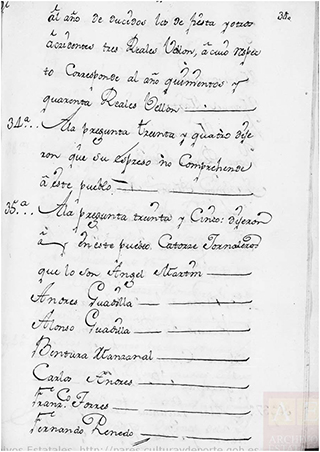 al año deducidos los de fiesta y otros
accidentes tres Reales Vellon, a cuio respec
to Corresponde al año quinientos y
quarenta Reales Vellon
34.ª... A la pregunta treinta y quatro dije
ron que su espreso no Comprehende
a este pueblo
35.ª... A la pregunta treinta y Cinco: dijeron
ai en este pueblo Catorze Jornaleros
que lo son Angel Martin
Andres Guadilla
Alonso Guadilla
Bentura Manzanal
Carlos Andres
Franz.co Torres
Fernando Renedo